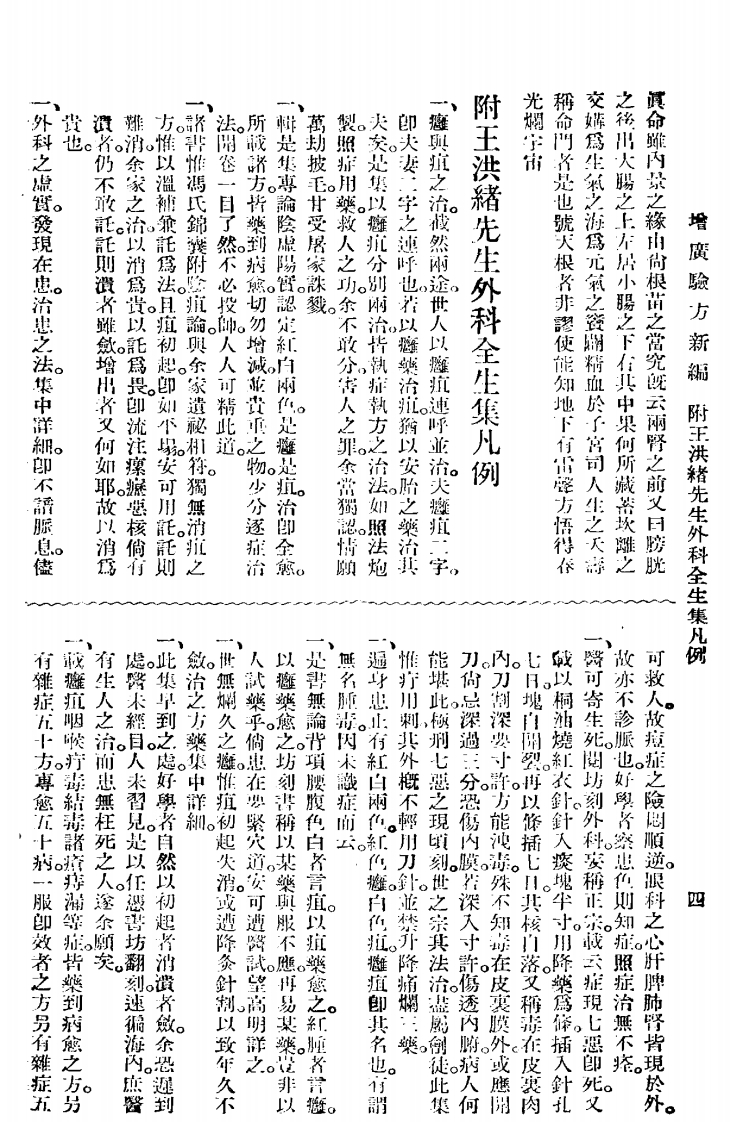 增廣驗方新編　附王洪緒先生外科全生集凡例　四
眞命雖內景之緣由尙根苗之當究旣云兩腎之前又曰膀胱
之後出大腸之上左居小腸之下右其中果何所藏蓄坎離之
交媾爲生氣之海爲元氣之竇闢精血於子宮司人生之夭壽
稱命門者是也號天根者非謬使能知地下有雷聲方悟得春
光爛宇宙
附王洪緒先生外科全生集凡例
一、癰與疽之治。截然兩途。世人以癰疽連呼並治。夫癰疽二字。
卽夫妻二字之連呼也。若以癰藥治疽。猶以安胎之藥治其
夫矣。是集以癰疽分別兩治。皆執症執方之治法。如照法炮
製。照症用藥。救人之功。余不敢分。害人之罪。余當獨認。情願
萬劫披毛。甘受屠家誅戮。
一、輯是集專論陰虛陽實。認定紅白兩色。是癰是疽。治卽全愈。
所載諸方。皆藥到病愈。切勿增減。並貴重之物。少分逐症治
法。開卷一目了然。不必投師。人人可精此道。
一、諸書惟馮氏錦囊附陰疽論。與余家遺秘相符。獨無消疽之
方。惟以溫補兼託爲法。且疽初起。卽如不塲。安可用託。託則
難消。余家之治。以消爲貴。以託爲畏。卽流注瘰癧惡核。倘有
潰者。仍不敢託。託則潰者雖斂。增出者又何如耶。故以消爲
貴也。
一、外科之虛實。發現在患。治患之法。集中詳細。卽不諳脈息。儘
可救人。故痘症之險悶順逆。眼科之心肝脾肺腎。皆現於外。
故亦不診脈也。好學者察患色則知症。照症治無不痊。
一、醫可寄生死。閱坊刻外科妄稱正宗。載云。症現七惡卽死。又
載以桐油燒紅衣針。針入痰塊半寸。用降藥爲條。插入針孔
七日。塊自開裂。再以條插七日。其核自落。又稱毒在皮裏肉
內。刀割深要寸許。方能洩毒。殊不知毒在皮裏膜外。或應開
刀。尙忌深過三分。恐傷內膜。若深入寸許。傷透內腑。病人何
能堪此極刑。七惡之現頃刻。世之宗其法治。盡屬劊徒。此集
惟疔用刺。其外概不輕用刀針。並禁升降痛爛二藥。
一、遍身患止有紅白兩色。紅色癰。白色疽。癰疽卽其名也。有謂
無名腫毒。因未識症而云。
一、是書無論背項腰腹。色白者言疽。以疽藥愈之。紅腫者言癰。
以癰藥愈之。坊刻書稱以某藥與服不應。再易某藥。豈非以
人試藥乎。倘患在要緊穴道。安可遭醫試。望高明詳之。
一、世無爛久之癰。惟疽初起失消。或遭降灸針割。以致年久不
斂。治之方藥。集中詳細。
一、此集早到之處。好學者自然以初起者消。潰者斂。余恐遲到
處。醫未經目。人未習見。是以任憑書坊翻刻。速徧海內。庶醫
有生人之治。而患無枉死之人。遂余願矣。
一、載癰疽咽喉疔毒結毒諸瘡痔漏等症。皆藥到病愈之方。另
有雜症五十方。專愈五十病。一服卽效者之方。另有雜症五